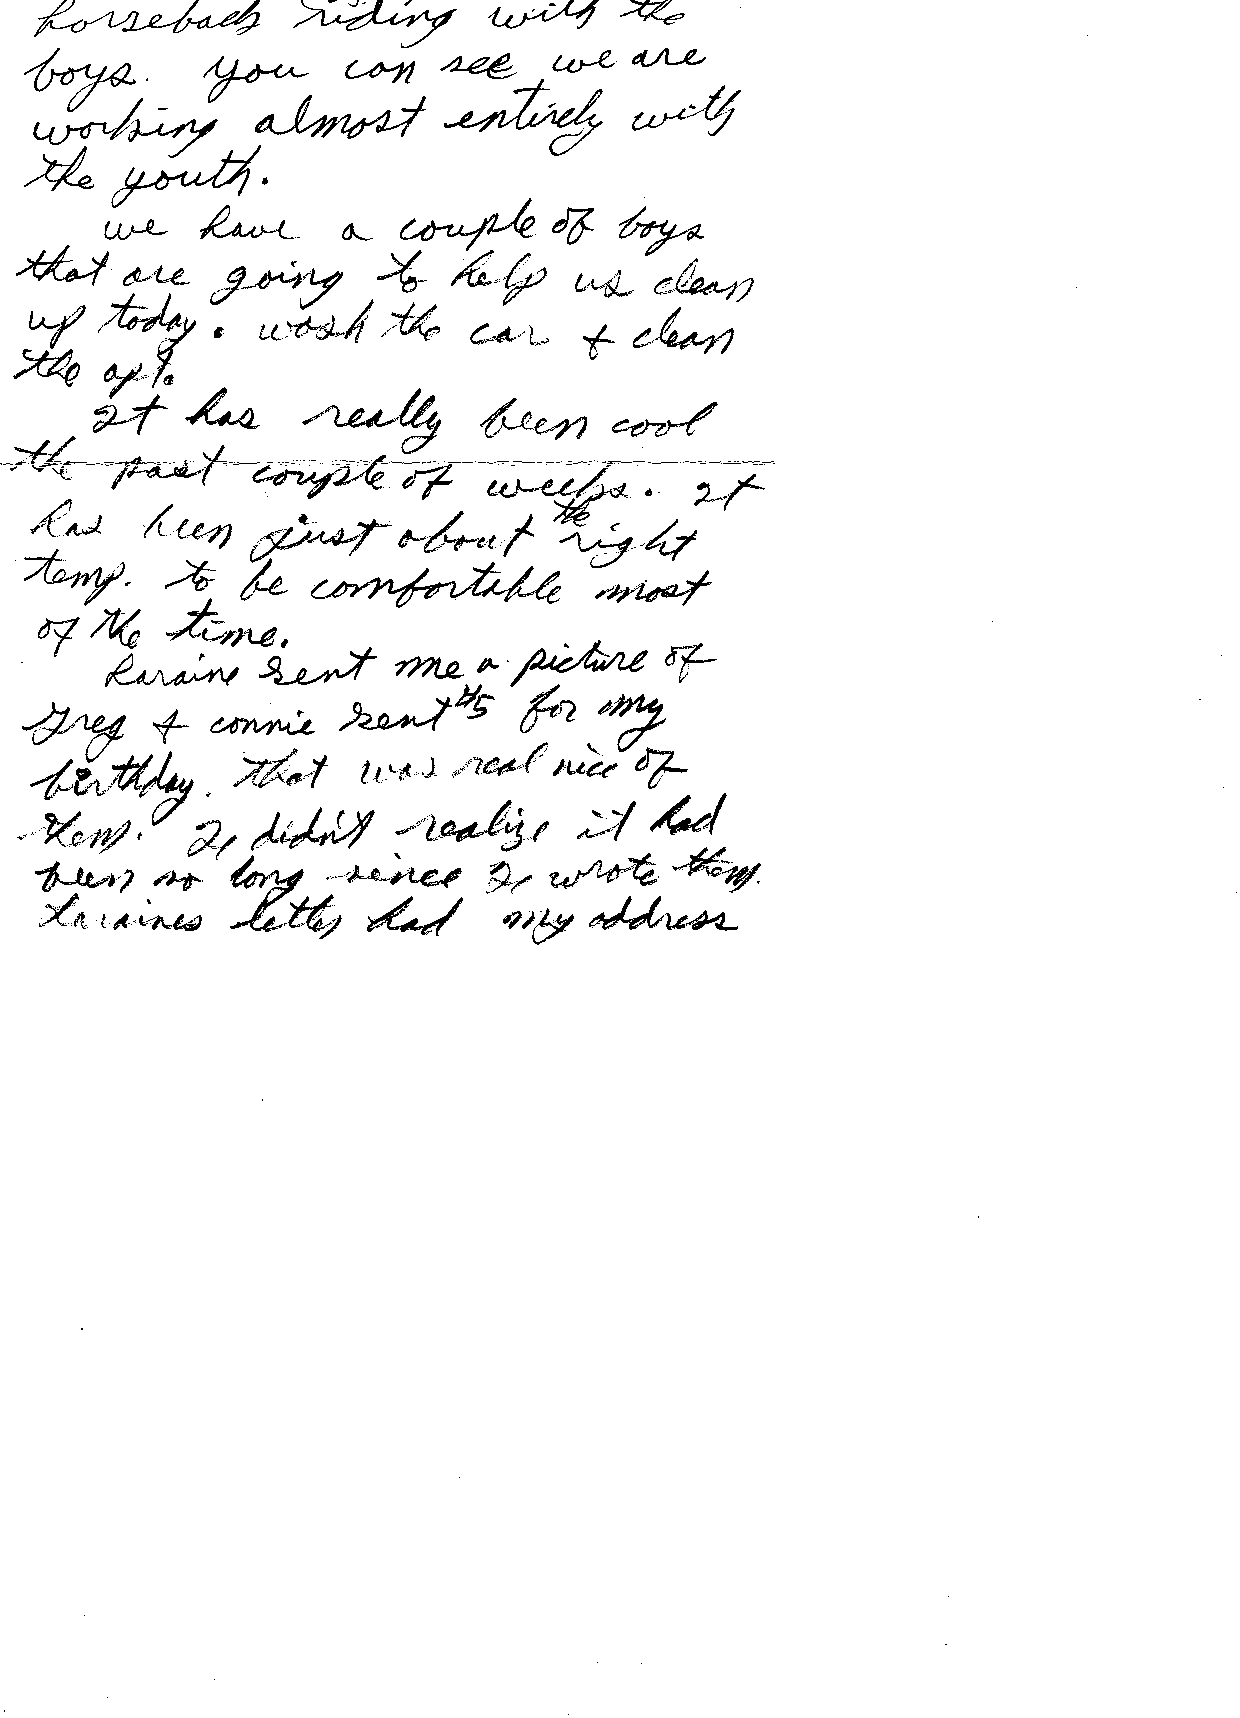 horseback riding with the
boys. you can see we are
working almost entirely with
the youth.
we have a couple of boys
that are going to help us clean
up today. wash the car + clean
the apt.
It has really been cool
the past couple of weeks. It
has been just about the right
temp. to be comfortable most
of the time.
Laraine sent me a picture of
Greg + connie sent $5 for my
birthday. that was real nice of
them. I didn't realize it had
been so long since I wrote them.
Laraines letter had my address